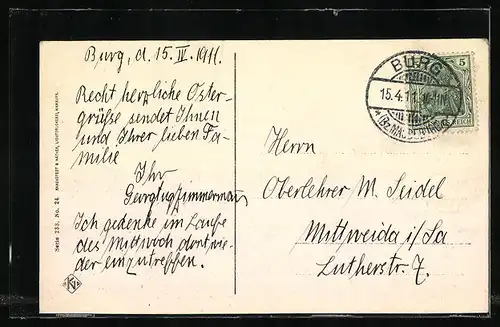 Burg, d. 15. IV. 1911.
Recht herzliche Oster-
grüße sendet Ihnen
und Ihrer lieben Fa-
milie
Ihr
Georg Zimmermann
Ich gedenke im Laufe
des Mittwoch dort wie-
der einzutreffen.
Serie 233, No. 24
BURG
15.4.11
5
REICH
Herrn
Oberlehrer M. Seidel
Mittweida i/Sa
Lutherstr. 7.